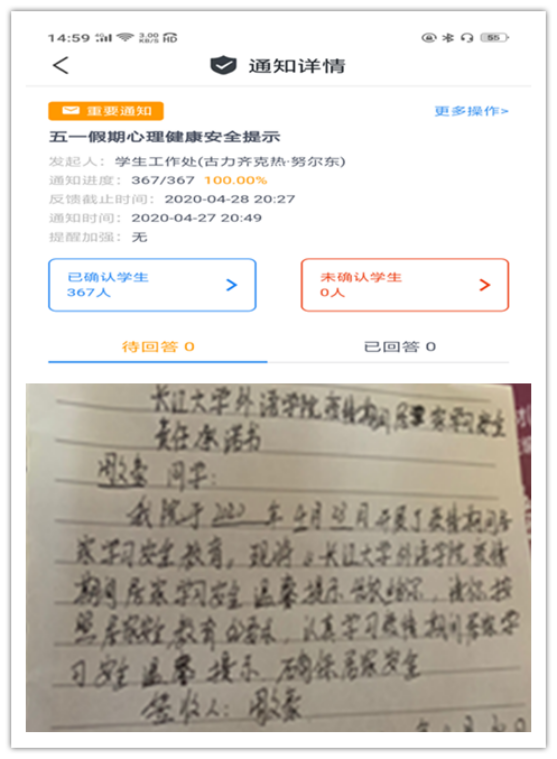 14:59 3.00 KB/S HD 55
通知详情
重要通知 更多操作>
五一假期心理健康安全提示
发起人: 学生工作处(古力齐克热·努尔东)
通知进度: 367/367 100.00%
反馈截止时间: 2020-04-28 20:27
通知时间: 2020-04-27 20:49
提醒加强: 无
已确认学生 未确认学生
367人 0人
待回答 0 已回答 0
长江大学外语学院疫情期间居家学习安全
责任承诺书
同学:
我院于2020年4月 月开展了疫情期间居
家学习安全教育,现将《长江大学外语学院疫情
期间居家学习安全温馨提示 ,请你按
照居家安全教育的要求,认真学习疫情期间居家学
习安全温馨提示 确保居家安全
签收人: